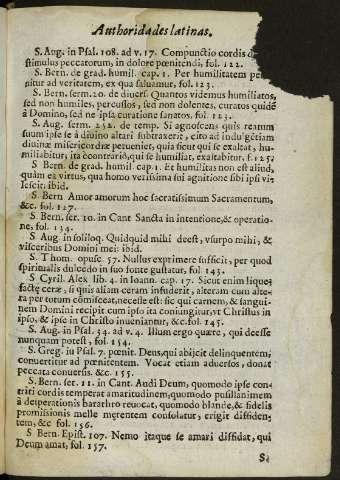 Authoridades latinas.
S. Aug. in Psal. 108. ad v. 17. Compunctio cordis
stimulus peccatorum, in dolore pœnitendi, fol. 122.
S. Bern. de grad. humil. cap. 1. Per humilitatem
nitur ad veritatem, ex qua saluamur, fol. 123.
S. Bern. serm. 20. de diuers. Quantos videmus humiliatos,
sed non humiles, percussos, sed non dolentes, curatos quidẽ
à Domino, sed ne ipsa curatione sanatos, fol. 123.
S. Aug. serm. 252. de temp. Si agnoscens quis reatum
suum ipse se à diuino altari subtraxerit, cito ad indu'gẽtiam
diuinæ misericordiæ perueniet, quia sicut qui se exaltat, hu-
miliabitur, ita contrario, qui se humiliat, exaltabitur, f. 125.
S. Bern. de grad. humil cap. 1. Et humilitas non est aliud,
quàm ea virtus, qua homo verissima sui agnitione sibi ipsi vi-
lescit. ibid.
S Bern Amor amorum hoc sacratissimum Sacramentum,
&c. fol. 127.
S. Bern. ser. 10. in Cant Sancta in intentione, & operatio-
ne, fol. 134.
S Aug in soliloq. Quidquid mihi deest, vsurpo mihi, &
visceribus Domini mei: ibid.
S Thom. opusc. 57. Nullus exprimere sufficit, per quod
spiritualis dulcedo in suo fonte gustatur, fol 143.
S Cyril. Alex lib. 4. in Ioann. cap. 17. Sicut enim lique-
factę ceræ, si quis aliam ceram infuderit, alteram cum alte-
ra per totum cõmisceat, necesse est: sic qui carnem, & sangui-
nem Domini recipit cum ipso ita coniungitur, vt Christus in
ipso, & ipse in Christo inueniantur, &c. fol. 145.
S. Aug in Psal. 34. ad v. 4. Illum ergo quære, qui deesse
nunquam potest, fol. 154.
S. Greg. iu Psal. 7. pœnit. Deus, qui abijcit delinquentem,
conuertitur ad pœnitentem. Vocat etiam aduersos, donat
peccata conuersis. &c. 155.
S. Bern. ser. 11. in Cant. Audi Deum, quomodo ipse con-
trari cordis temperat amaritudinem, quomodo pusillanimem
à desperationis barathro reuocat, quomodo blandæ, & fidelis
promissionis melle mœrentem consolatur, erigit diffiden-
tem, &c fol. 156.
S Bern. Epist. 107. Nemo itaque se amari diffidat, qui
Deum amat, fol. 157.